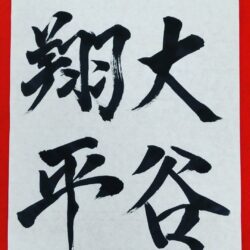 大谷
翔平